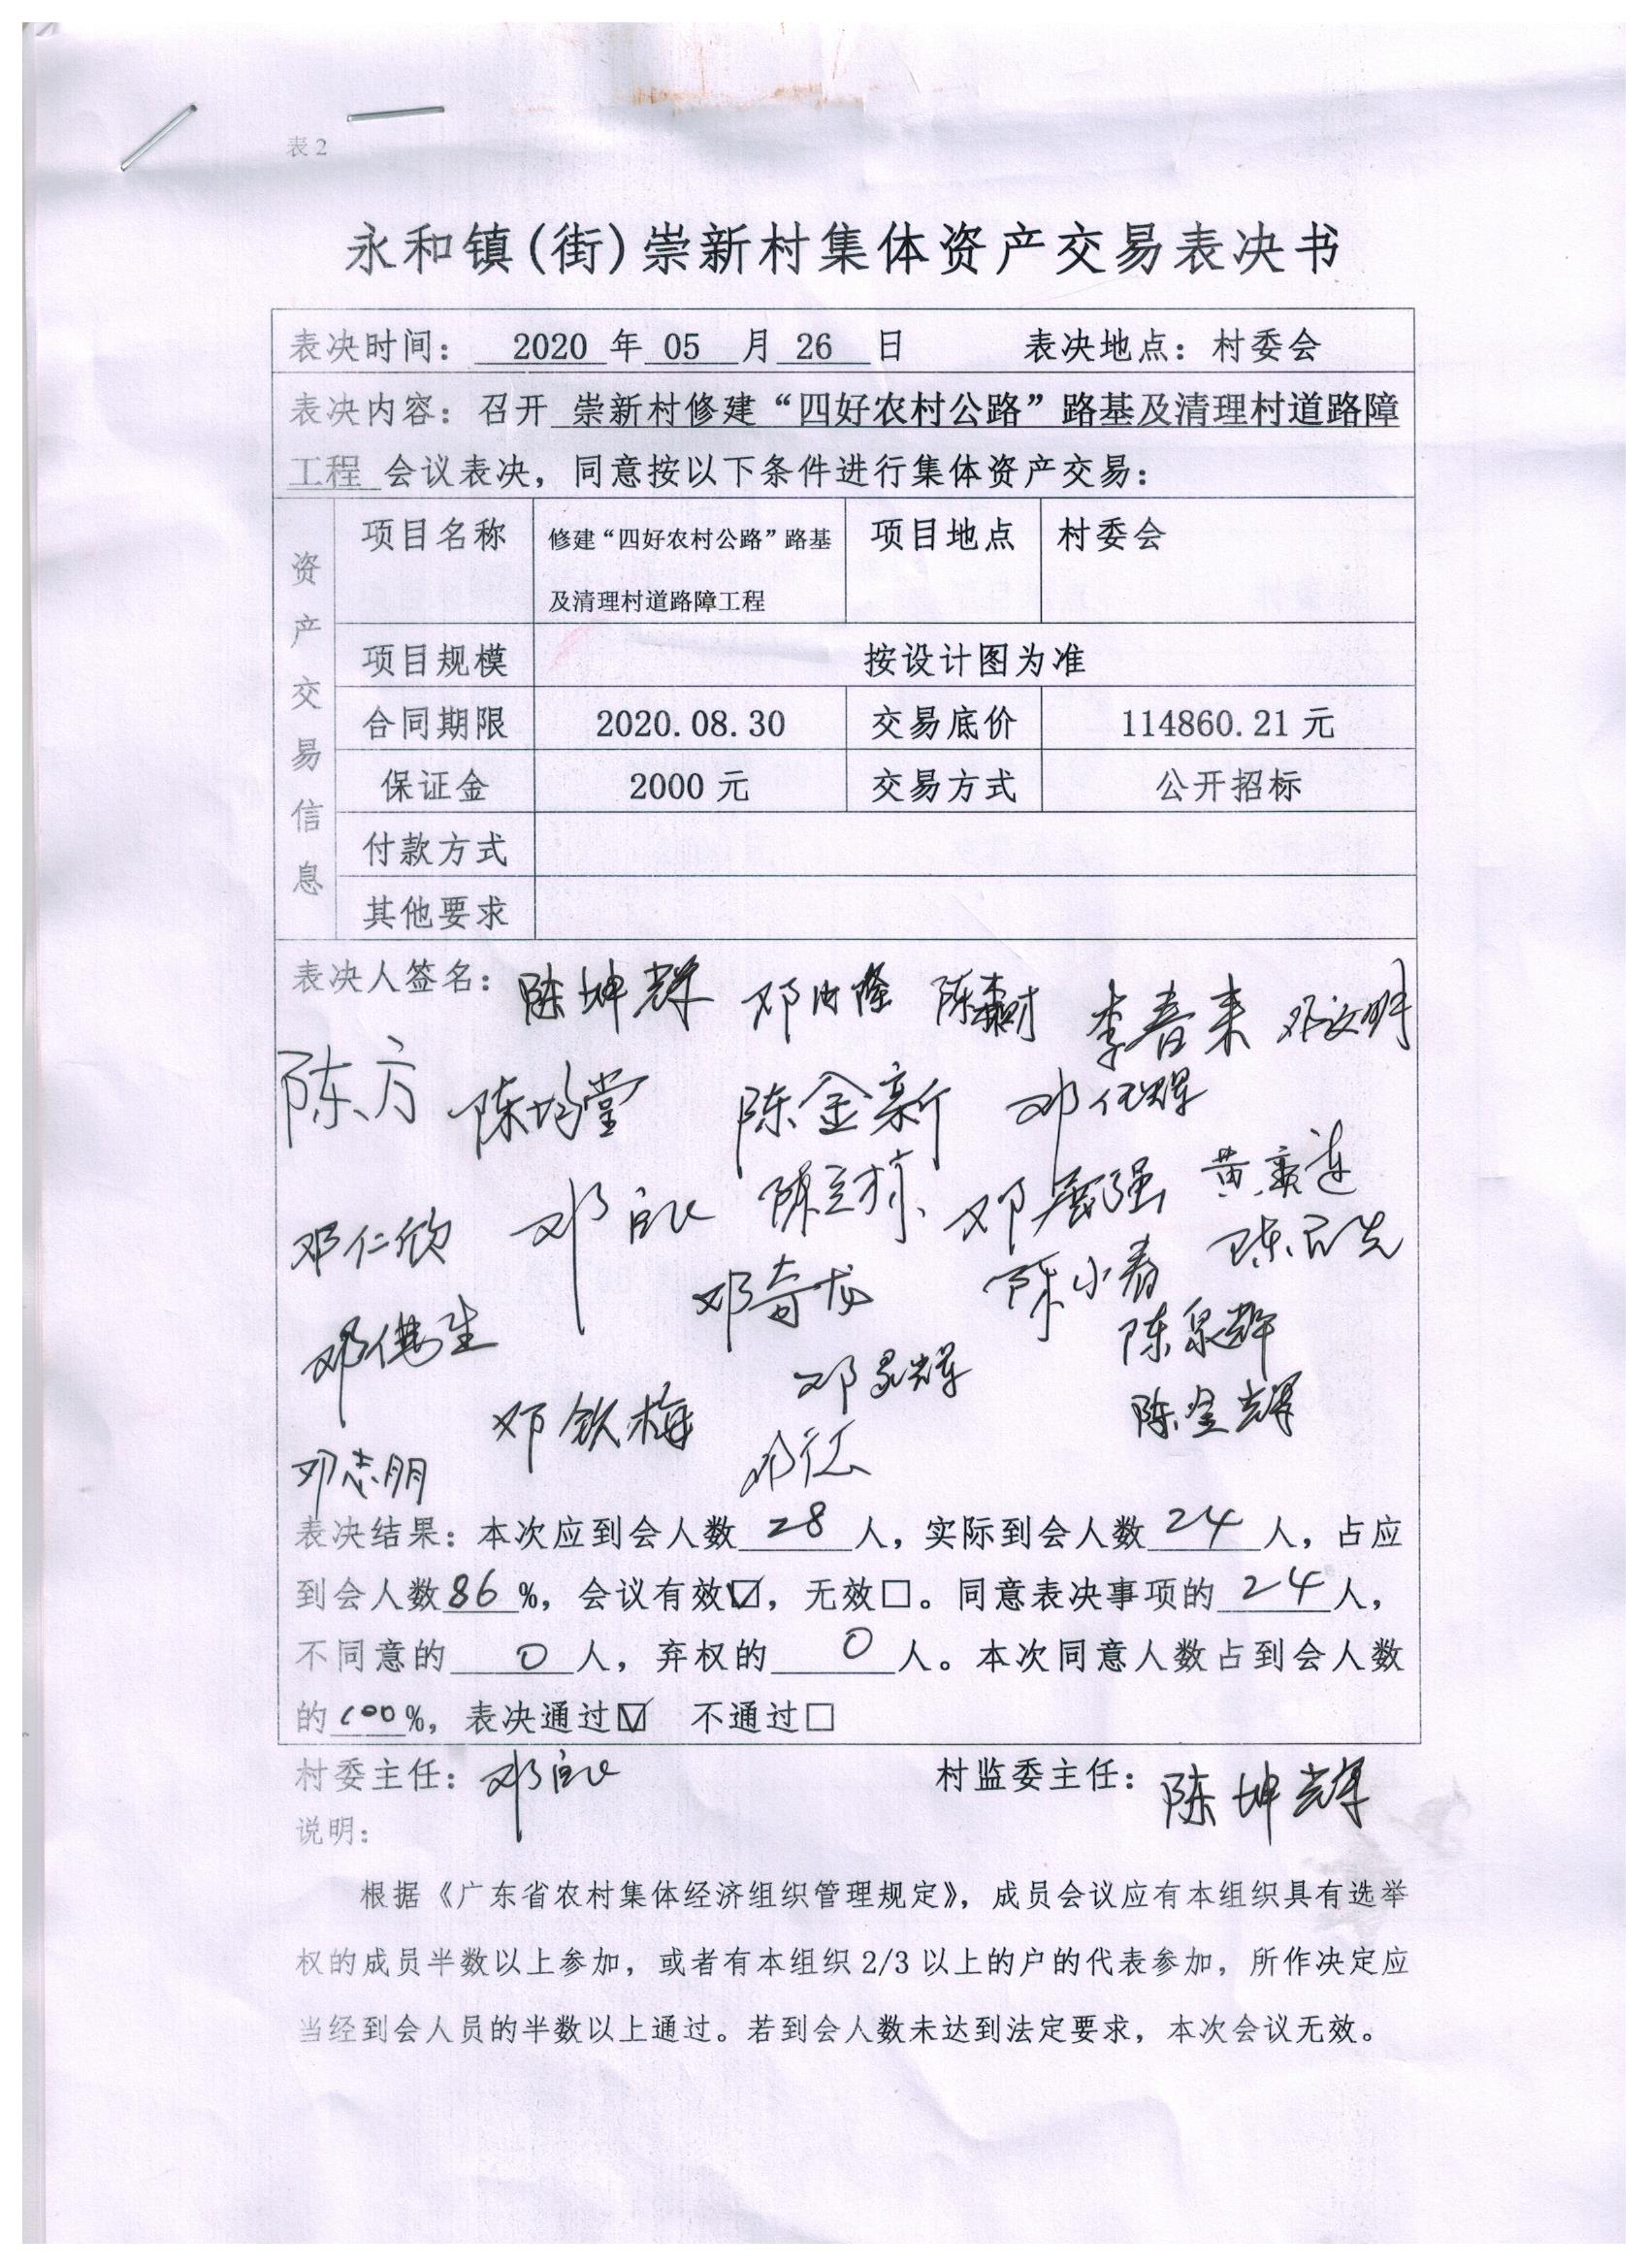 表2
永和镇(街)崇新村集体资产交易表决书
表决时间： 2020 年 05 月 26 日 表决地点：村委会
表决内容：召开 崇新村修建“四好农村公路”路基及清理村道路障
工程 会议表决，同意按以下条件进行集体资产交易：
资产交易信息
项目名称 修建“四好农村公路”路基 项目地点 村委会
及清理村道路障工程
项目规模 按设计图为准
合同期限 2020.08.30 交易底价 114860.21 元
保证金 2000 元 交易方式 公开招标
付款方式
其他要求
表决人签名： 陈坤辉 李春来 邓汝明
陈方 陈金新
邓仁欣 邓展强
邓奇龙 陈小春
陈泉辉
邓钦梅 陈金辉
邓志朋
表决结果：本次应到会人数 28 人，实际到会人数 24 人，占应
到会人数 86 %，会议有效☑，无效□。同意表决事项的 24 人，
不同意的 0 人，弃权的 0 人。本次同意人数占到会人数
的 100 %，表决通过☑ 不通过□
村委主任： 村监委主任： 陈坤辉
说明：
根据《广东省农村集体经济组织管理规定》，成员会议应有本组织具有选举
权的成员半数以上参加，或者有本组织 2/3 以上的户的代表参加，所作决定应
当经到会人员的半数以上通过。若到会人数未达到法定要求，本次会议无效。